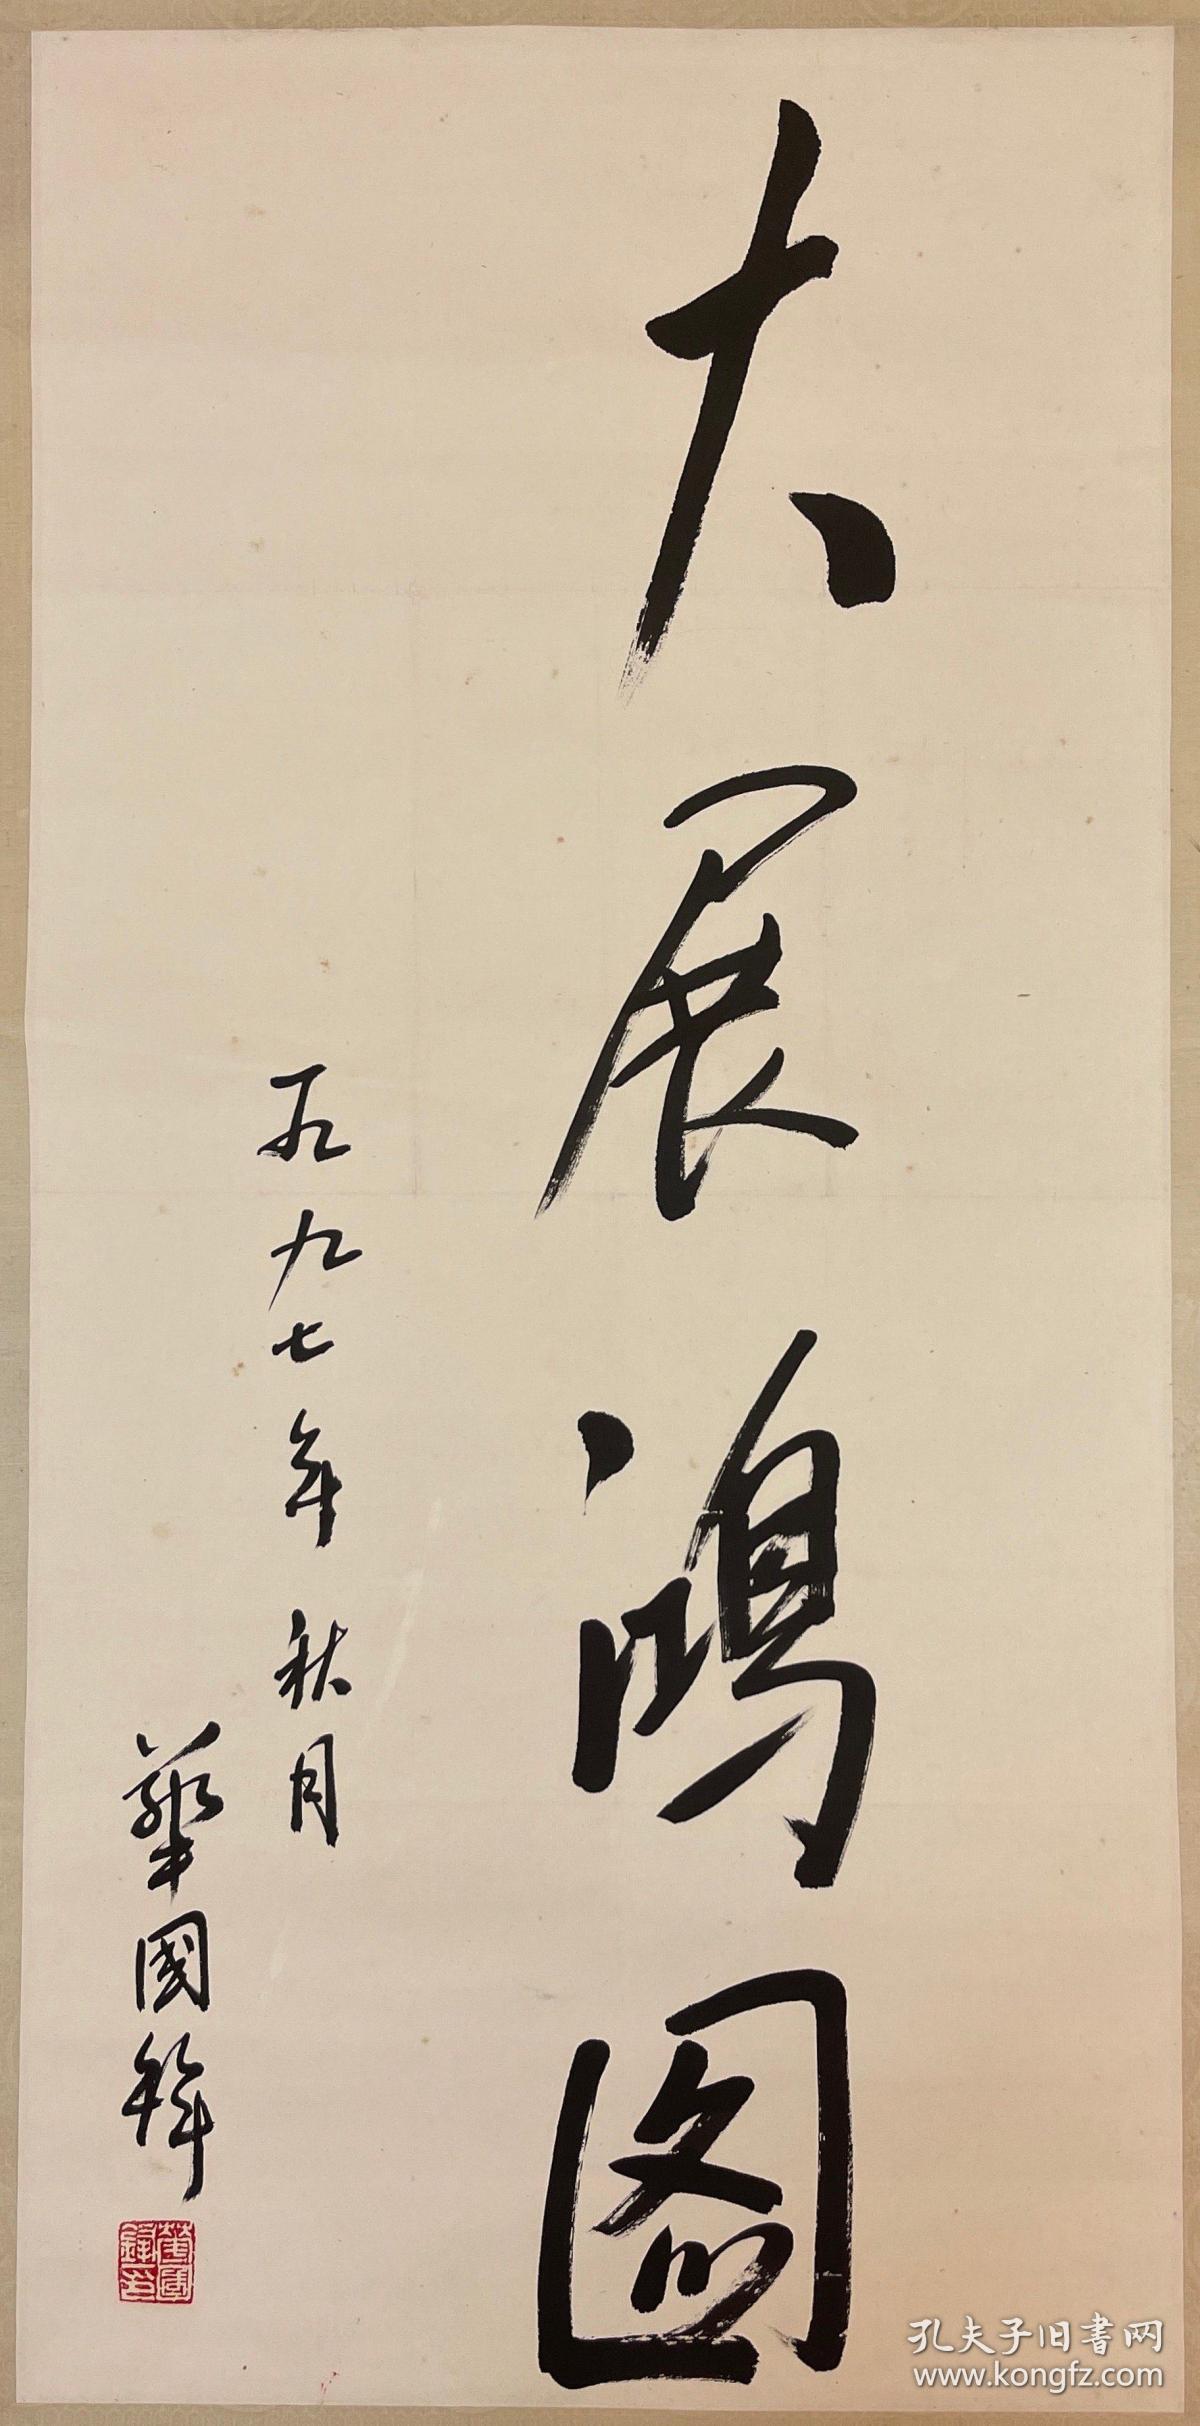 大展鴻图
一九九七年秋月
華國鋒
華國鋒印
孔夫子旧書网
www.kongfz.com